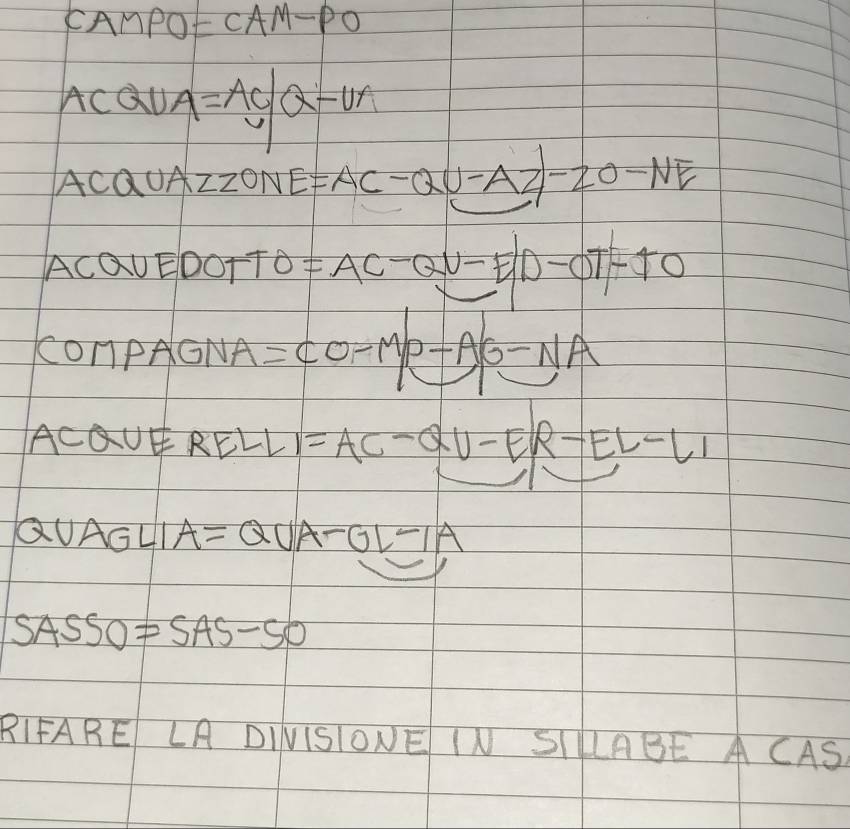 CAMPO=CAM-PO
ACQUA=AC|Q-UA
ACQUAZZONE=AC-QU-AZ|-ZO-NE
ACQUEDOTTO=AC-QU-E|D-OT|-TO
COMPAGNA=CO-M|P-A|G-NA
ACQUERELLI=AC-QU-E|R-EL-LI
QUAGLIA=QUA-GL-IA
SASSO=SAS-SO
RIFARE LA DIVISIONE IN SILLABE A CAS